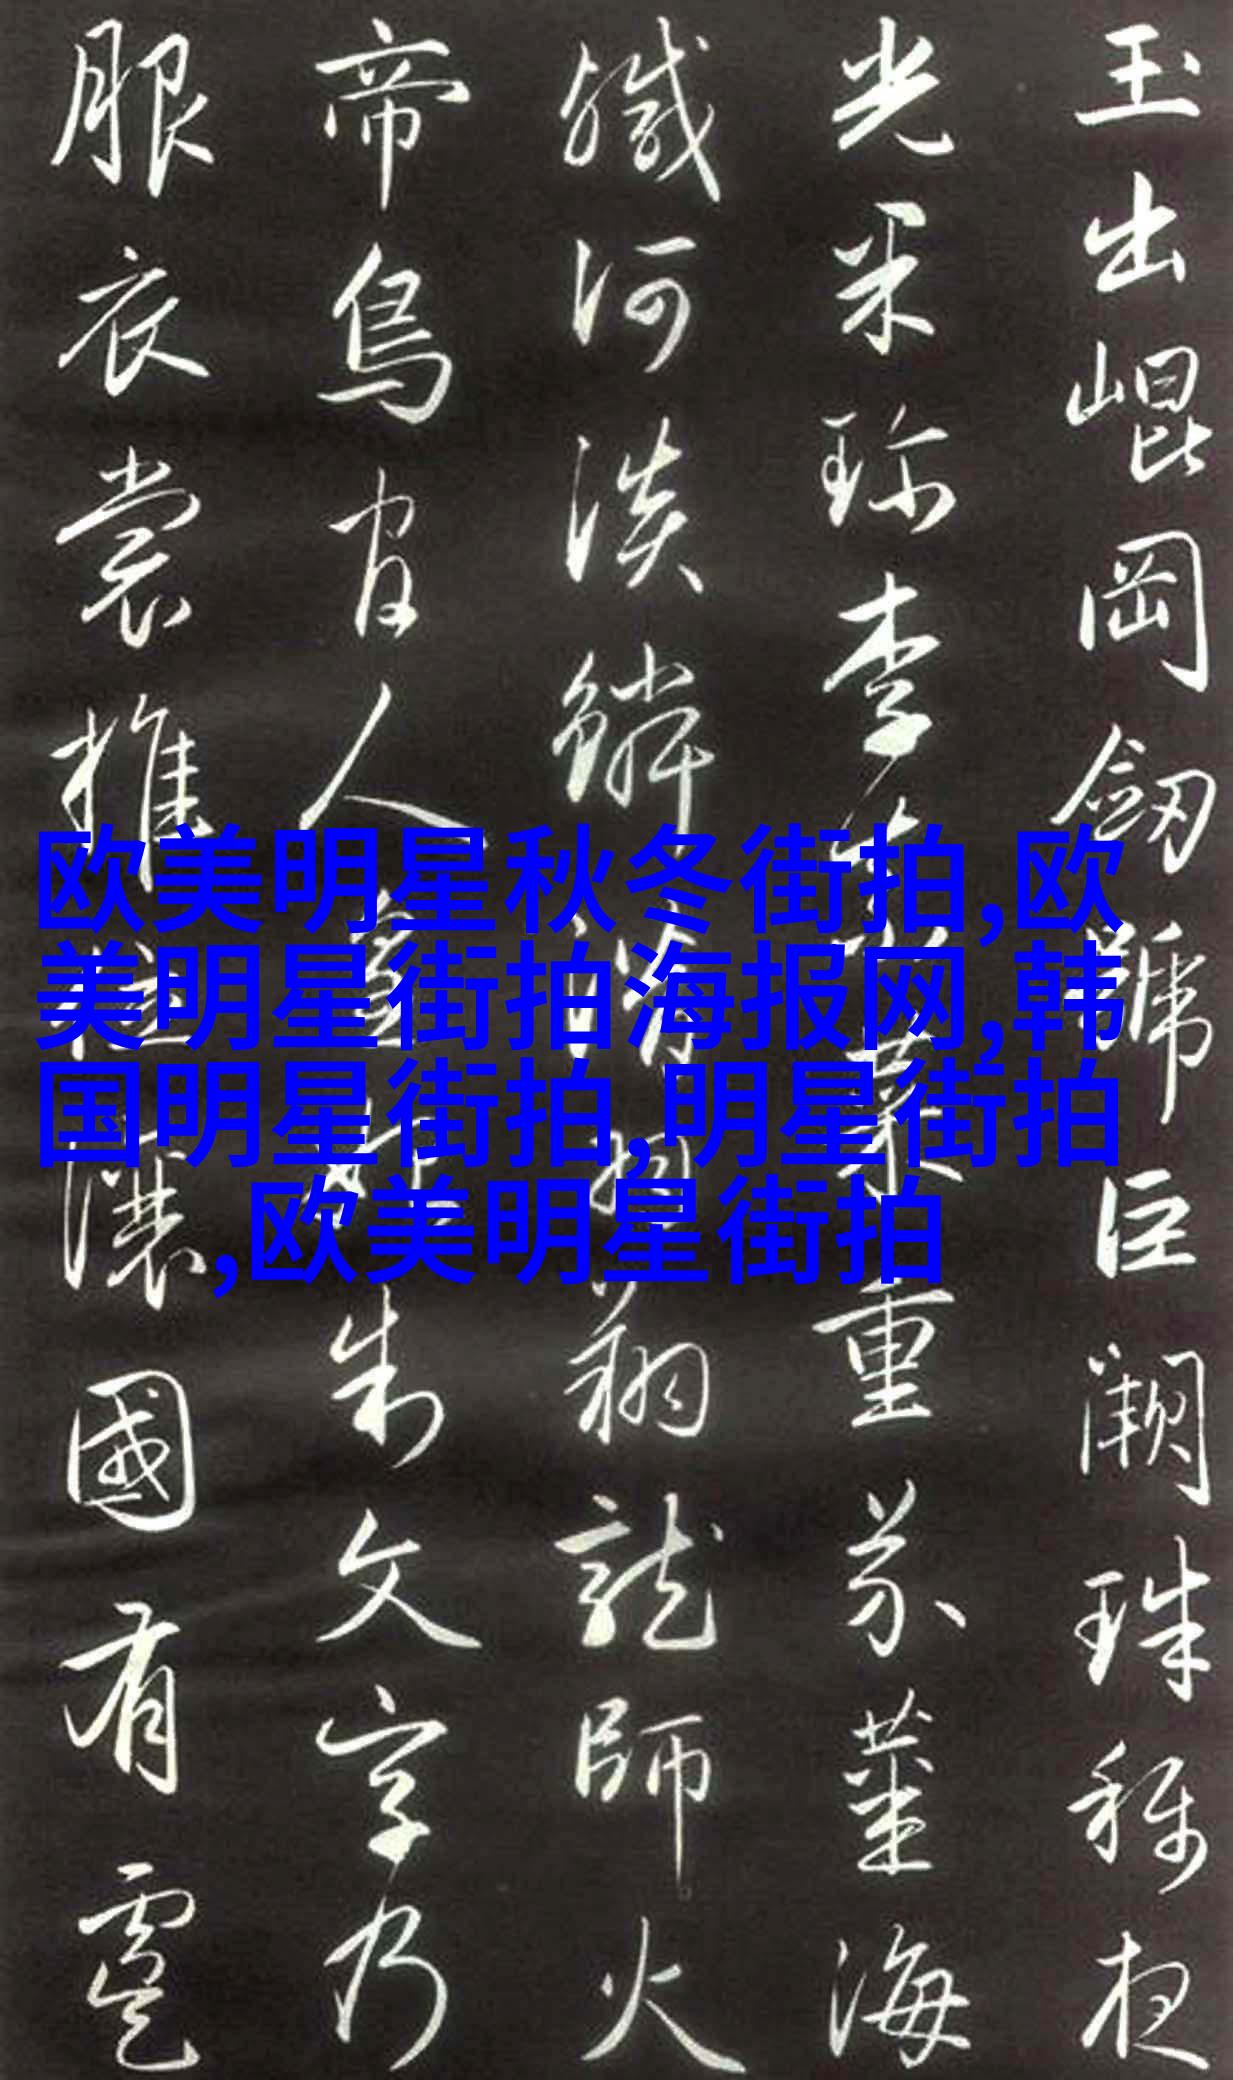 玉出崐岡劒號巨闕珠稱夜
光果珍李柰菜重芥薑海
鹹河淡鱗潛羽翔龍師火
帝鳥官人皇始制文字乃
服衣裳推位讓國有虞
欧美明星秋冬街拍,欧
美明星街拍海报网,韩
国明星街拍,明星街拍
,欧美明星街拍